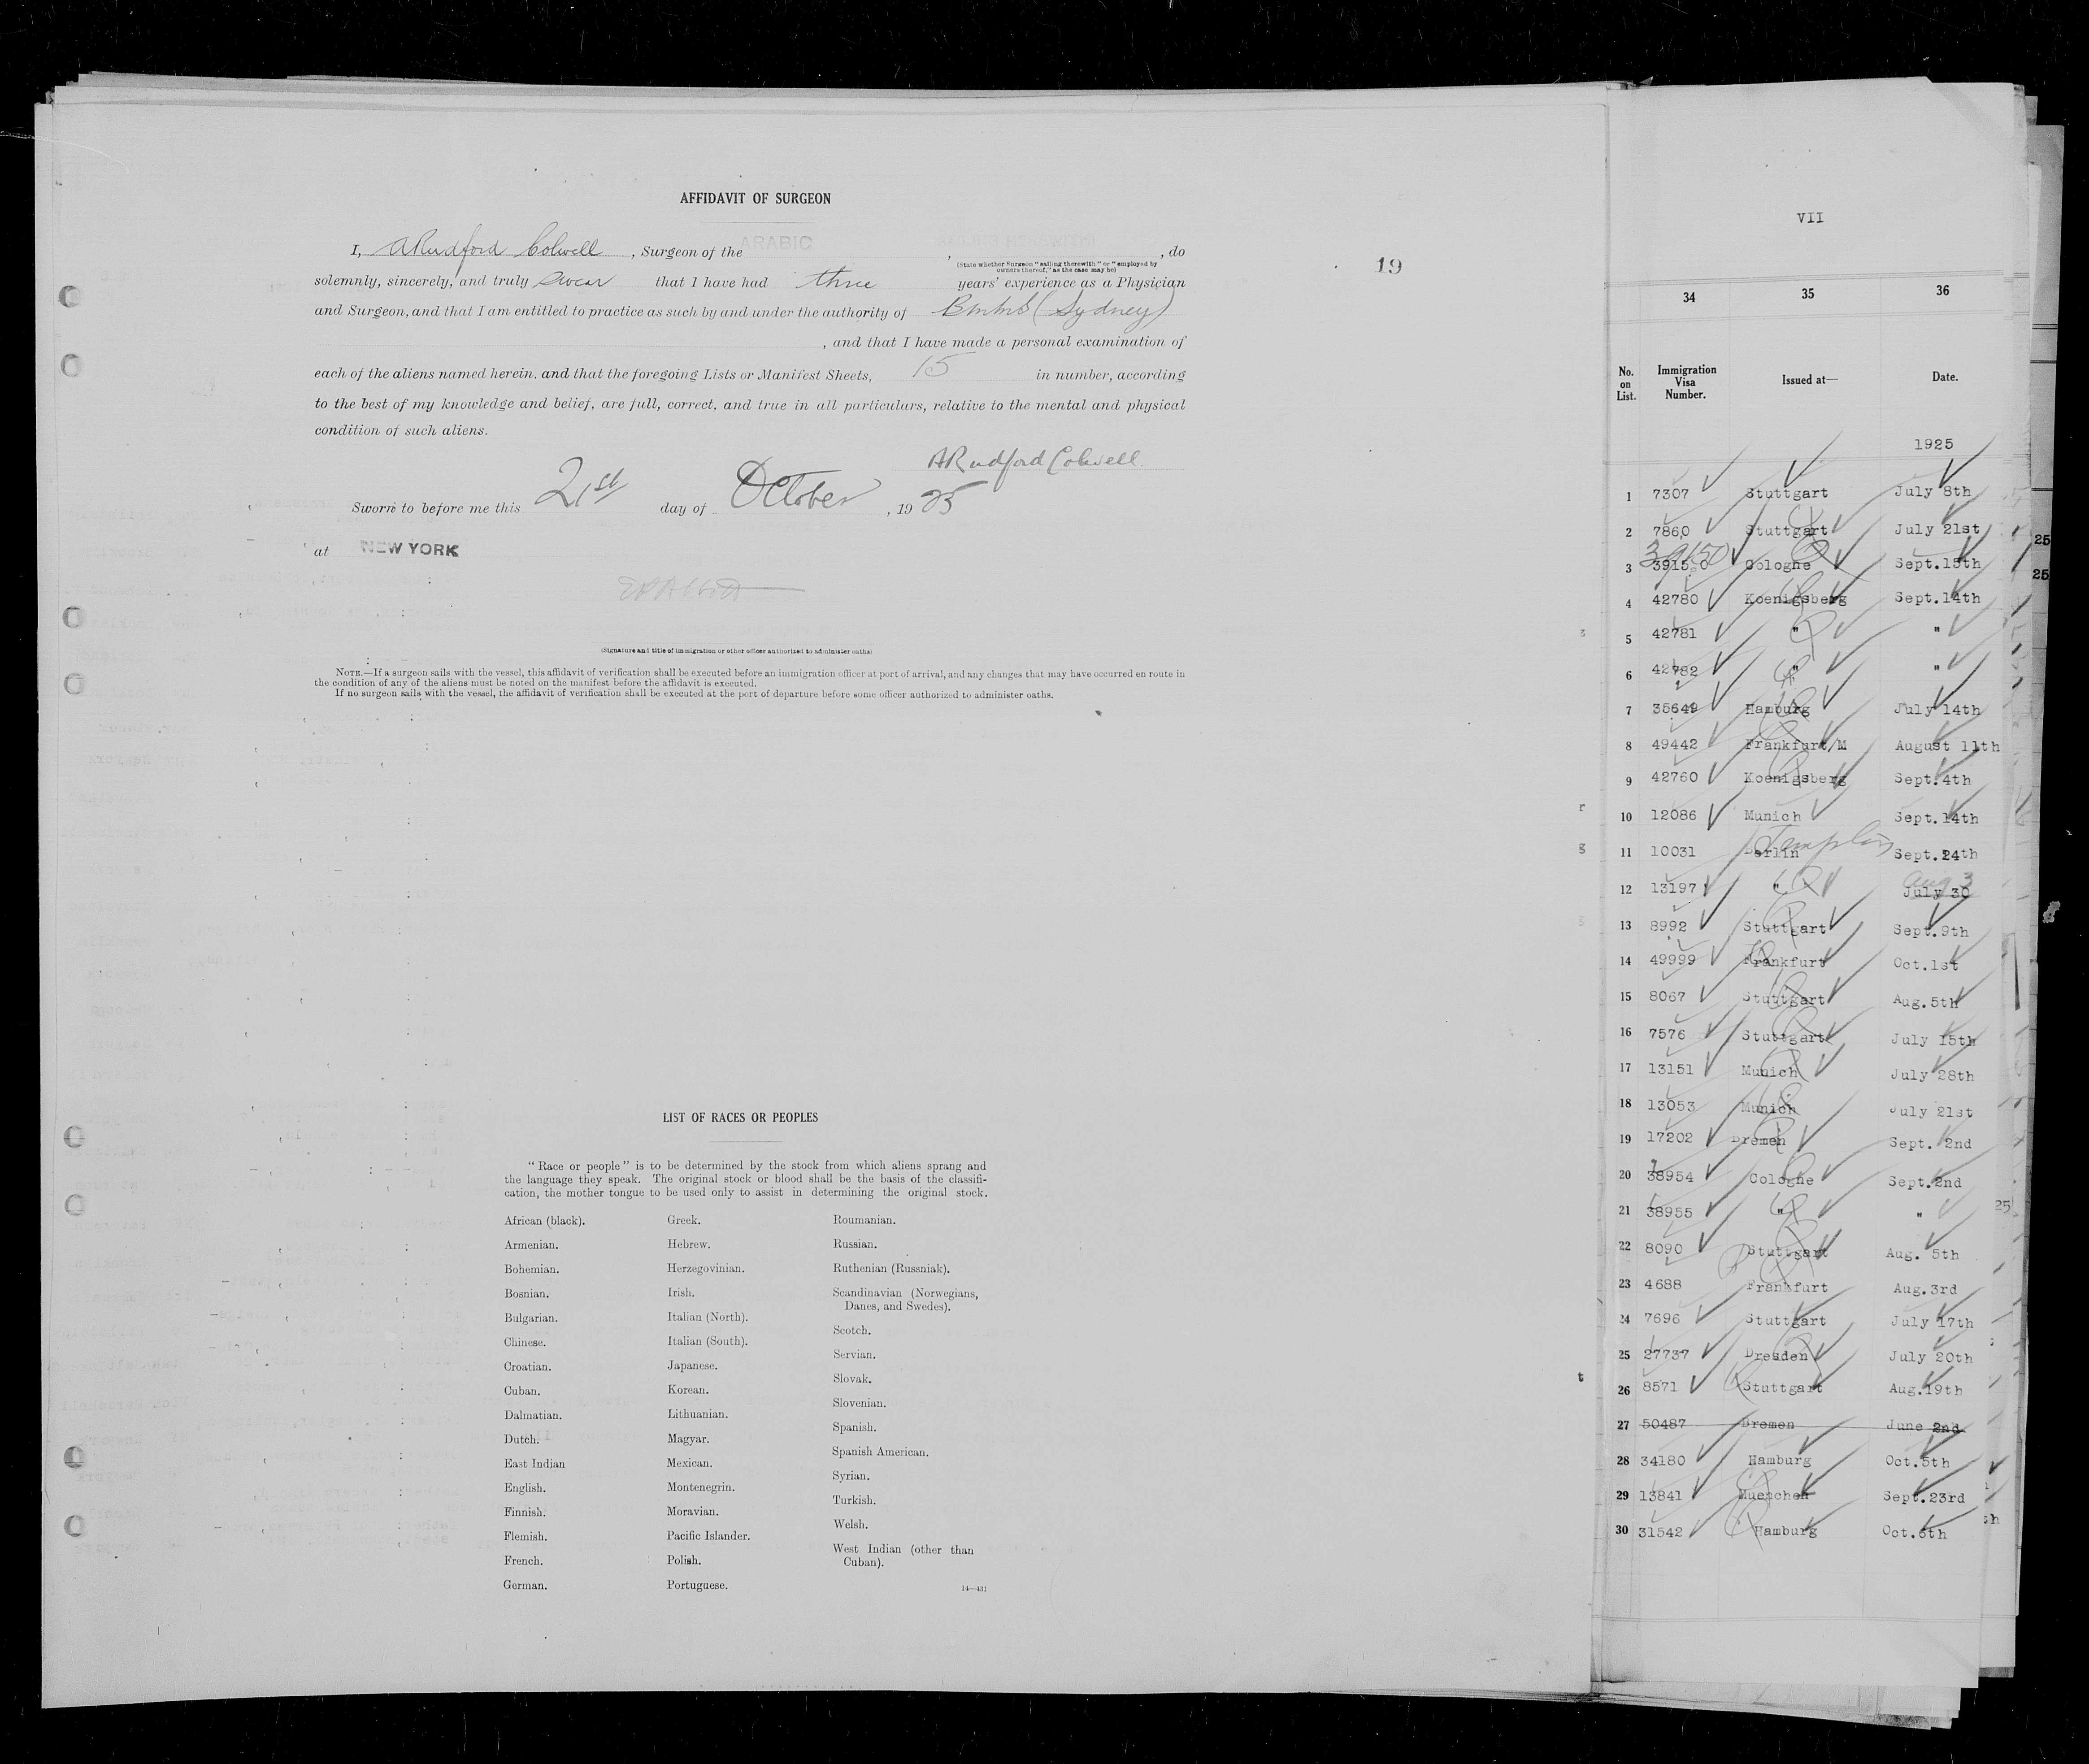 AFFIDAVIT OF SURGEON
I, A Rudford Colwell, Surgeon of the ARABIC, SAILING THEREWITH, do
(State whether Surgeon "sailing therewith" or "employed by
owners thereof," as the case may be)
19
solemnly, sincerely, and truly swear that I have had three years' experience as a Physician
and Surgeon, and that I am entitled to practice as such by and under the authority of (Sydney)
, and that I have made a personal examination of
each of the aliens named herein, and that the foregoing Lists or Manifest Sheets, 15 in number, according
to the best of my knowledge and belief, are full, correct, and true in all particulars, relative to the mental and physical
condition of such aliens.
A Rudford Colwell
Sworn to before me this 21st day of October, 1925
at NEW YORK
(Signature and title of immigration or other officer authorized to administer oaths)
NOTE.—If a surgeon sails with the vessel, this affidavit of verification shall be executed before an immigration officer at port of arrival, and any changes that may have occurred en route in
the condition of any of the aliens must be noted on the manifest before the affidavit is executed.
If no surgeon sails with the vessel, the affidavit of verification shall be executed at the port of departure before some officer authorized to administer oaths.
LIST OF RACES OR PEOPLES
"Race or people" is to be determined by the stock from which aliens sprang and
the language they speak. The original stock or blood shall be the basis of the classifi-
cation, the mother tongue to be used only to assist in determining the original stock.
African (black).
Armenian.
Bohemian.
Bosnian.
Bulgarian.
Chinese.
Croatian.
Cuban.
Dalmatian.
Dutch.
East Indian
English.
Finnish.
Flemish.
French.
German.
Greek.
Hebrew.
Herzegovinian.
Irish.
Italian (North).
Italian (South).
Japanese.
Korean.
Lithuanian.
Magyar.
Mexican.
Montenegrin.
Moravian.
Pacific Islander.
Polish.
Portuguese.
Roumanian.
Russian.
Ruthenian (Russniak).
Scandinavian (Norwegians,
Danes, and Swedes).
Scotch.
Servian.
Slovak.
Slovenian.
Spanish.
Spanish American.
Syrian.
Turkish.
Welsh.
West Indian (other than
Cuban).
14—431
VII
34 35 36
No. on List. Immigration Visa Number. Issued at— Date.
1925
1 7307 Stuttgart July 8th
2 7860 Stuttgart July 21st
39150
3 39150 Cologne Sept.15th
4 42780 Koenigsberg Sept.14th
5 42781 " "
6 42782 " "
7 35649 Hamburg July 14th
8 49442 Frankfurt/M August 11th
9 42760 Koenigsberg Sept.4th
10 12086 Munich Sept.14th
11 10031 Berlin Templin Sept.24th
Aug 3
12 13197 " July 30
13 8992 Stuttgart Sept.9th
14 49999 Frankfurt Oct.1st
15 8067 Stuttgart Aug.5th
16 7576 Stuttgart July 15th
17 13151 Munich July 28th
18 13053 Munich July 21st
19 17202 Bremen Sept. 2nd
20 38954 Cologne Sept.2nd
21 38955 " "
22 8090 Stuttgart Aug. 5th
23 4688 Frankfurt Aug.3rd
24 7696 Stuttgart July 17th
25 27737 Dresden July 20th
26 8571 Stuttgart Aug.19th
27 50487 Bremen June 2nd
28 34180 Hamburg Oct.5th
29 13841 Muenchen Sept.23rd
30 31542 Hamburg Oct.6th
25
25
25